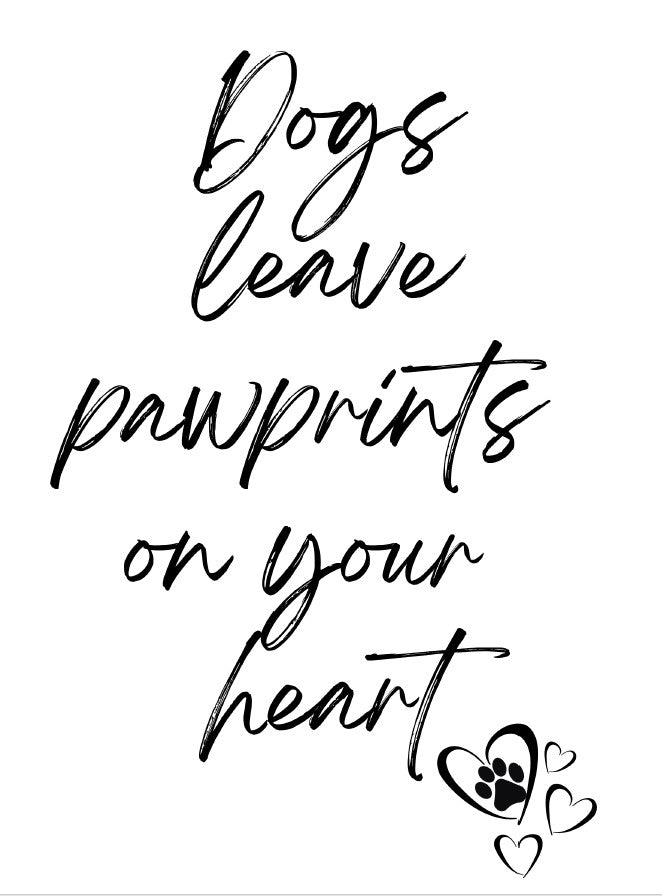 Dogs
leave
pawprints
on your
heart